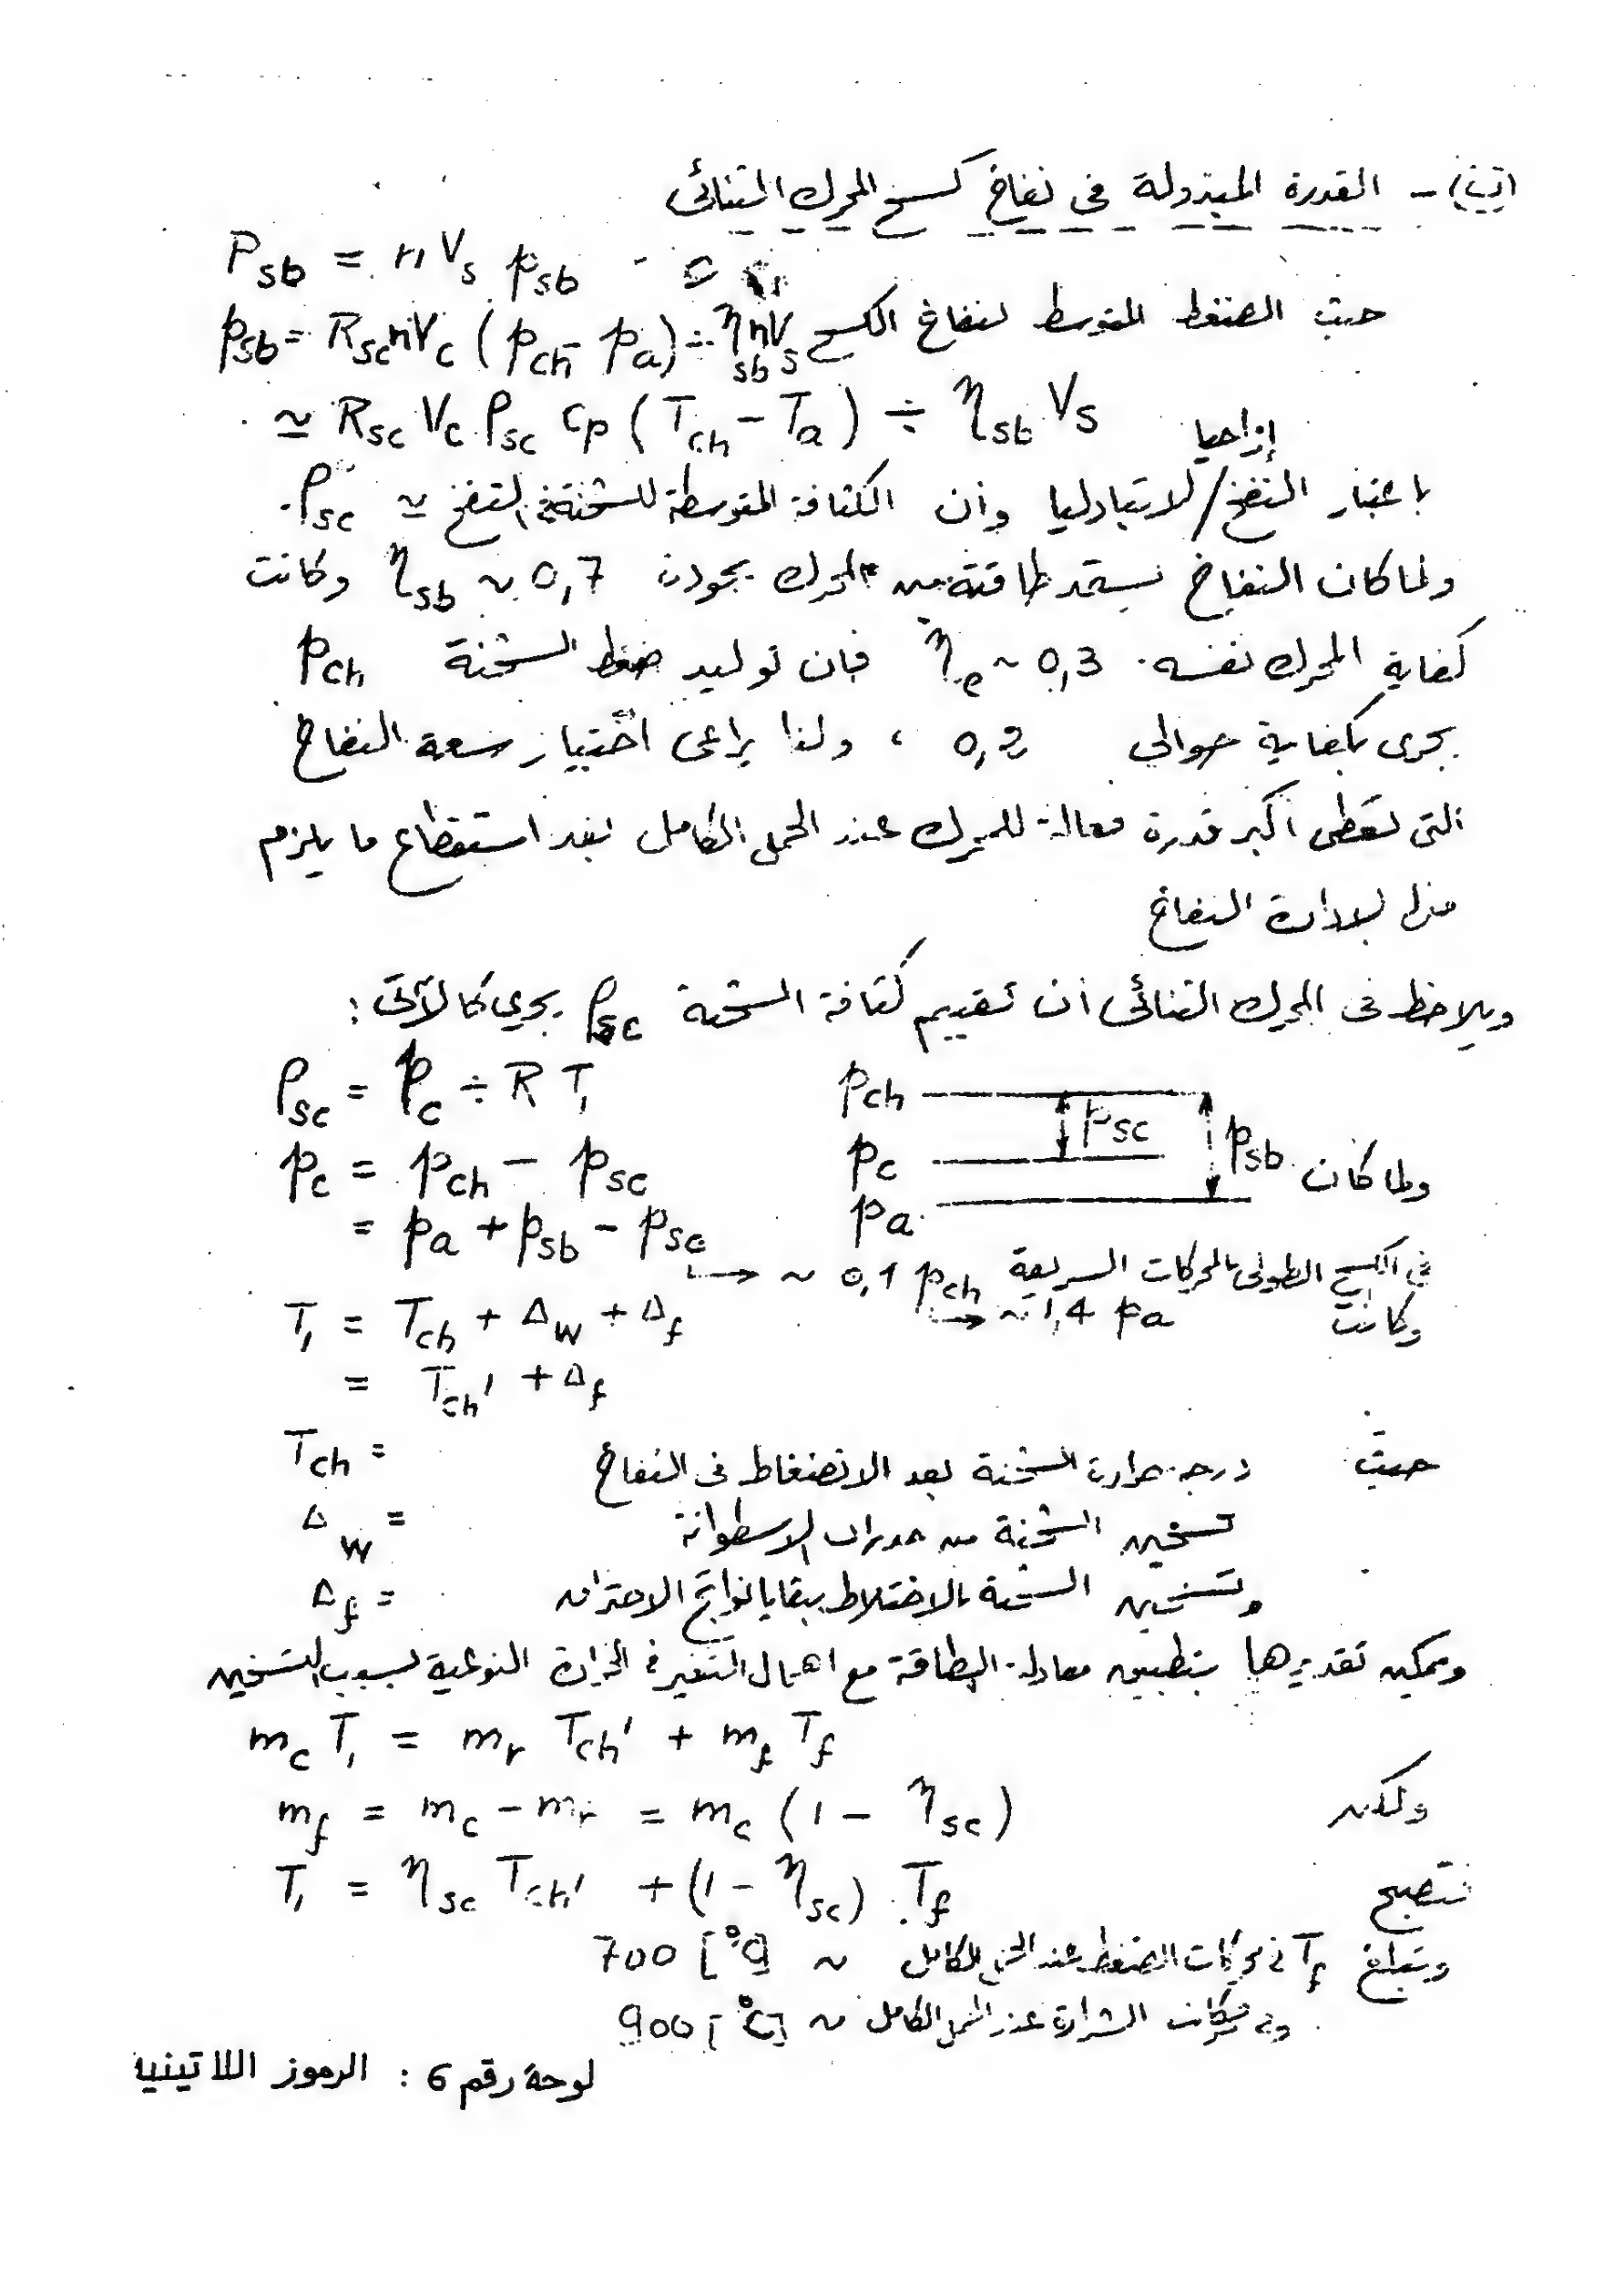 القدرة المبذولة فى نفاخ كسح المحرك الثنائى
P_sb = n V_s p_sb
حيث الضغط المتوسط لنفاخ الكسح p_sb = R_sc n V_c (p_ch - p_a) ÷ η_sb n V_s
≃ R_sc V_c ρ_sc c_p (T_ch - T_a) ÷ η_sb V_s
إزاحيا
باعتبار النفخ / لا تبادليا وأن الكثافة المتوسطة للشحنة فى النفخ ≃ ρ_sc
ولما كان النفاخ يستمد طاقته من المحرك بجودة η_sb ~ 0,7 وكانت
كفاية المحرك نفسه η_e ~ 0,3 فإن توليد ضغط الشحنة p_ch
يجرى بكفاية حوالى 0,2 ، ولذا يراعى اختيار سعة النفاخ
التى تعطى أكبر قدرة فعالة للمحرك عند الحمل الكامل بعد استقطاع ما يلزم
منها لإدارة النفاخ
ويلاحظ فى المحرك الثنائى أن تقييم كثافة الشحنة ρ_sc يجرى كالآتى :
ρ_sc = p_c ÷ R T_1
p_ch
p_sc
p_sb
p_c
p_a
ولما كان
p_c = p_ch - p_sc
= p_a + p_sb - p_sc
فى الكسح الطولى بالمحركات السريعة
→ ~ 0,1 p_ch
→ ~ 1,4 p_a
وكانت
T_1 = T_ch + Δ_w + Δ_f
= T_ch' + Δ_f
حيث درجة حرارة الشحنة بعد الانضغاط فى النفاخ = T_ch
تسخين الشحنة من جدران الاسطوانة = Δ_w
وتسخين الشحنة بالاختلاط ببقايا نواتج الاحتراق = Δ_f
ويمكن تقديرها بتطبيق معادلة الطاقة مع اهمال التغير فى الحرارة النوعية بسبب التسخين
m_c T_1 = m_r T_ch' + m_f T_f
ولكن m_f = m_c - m_r = m_c (1 - η_sc)
فتصبح T_1 = η_sc T_ch' + (1 - η_sc) T_f
وتبلغ T_f فى محركات الضغط عند الحمل الكامل ~ 700 [°C]
وفى محركات الشرارة عند الحمل الكامل ~ 900 [°C]
لوحة رقم 6 : الرموز اللاتينية